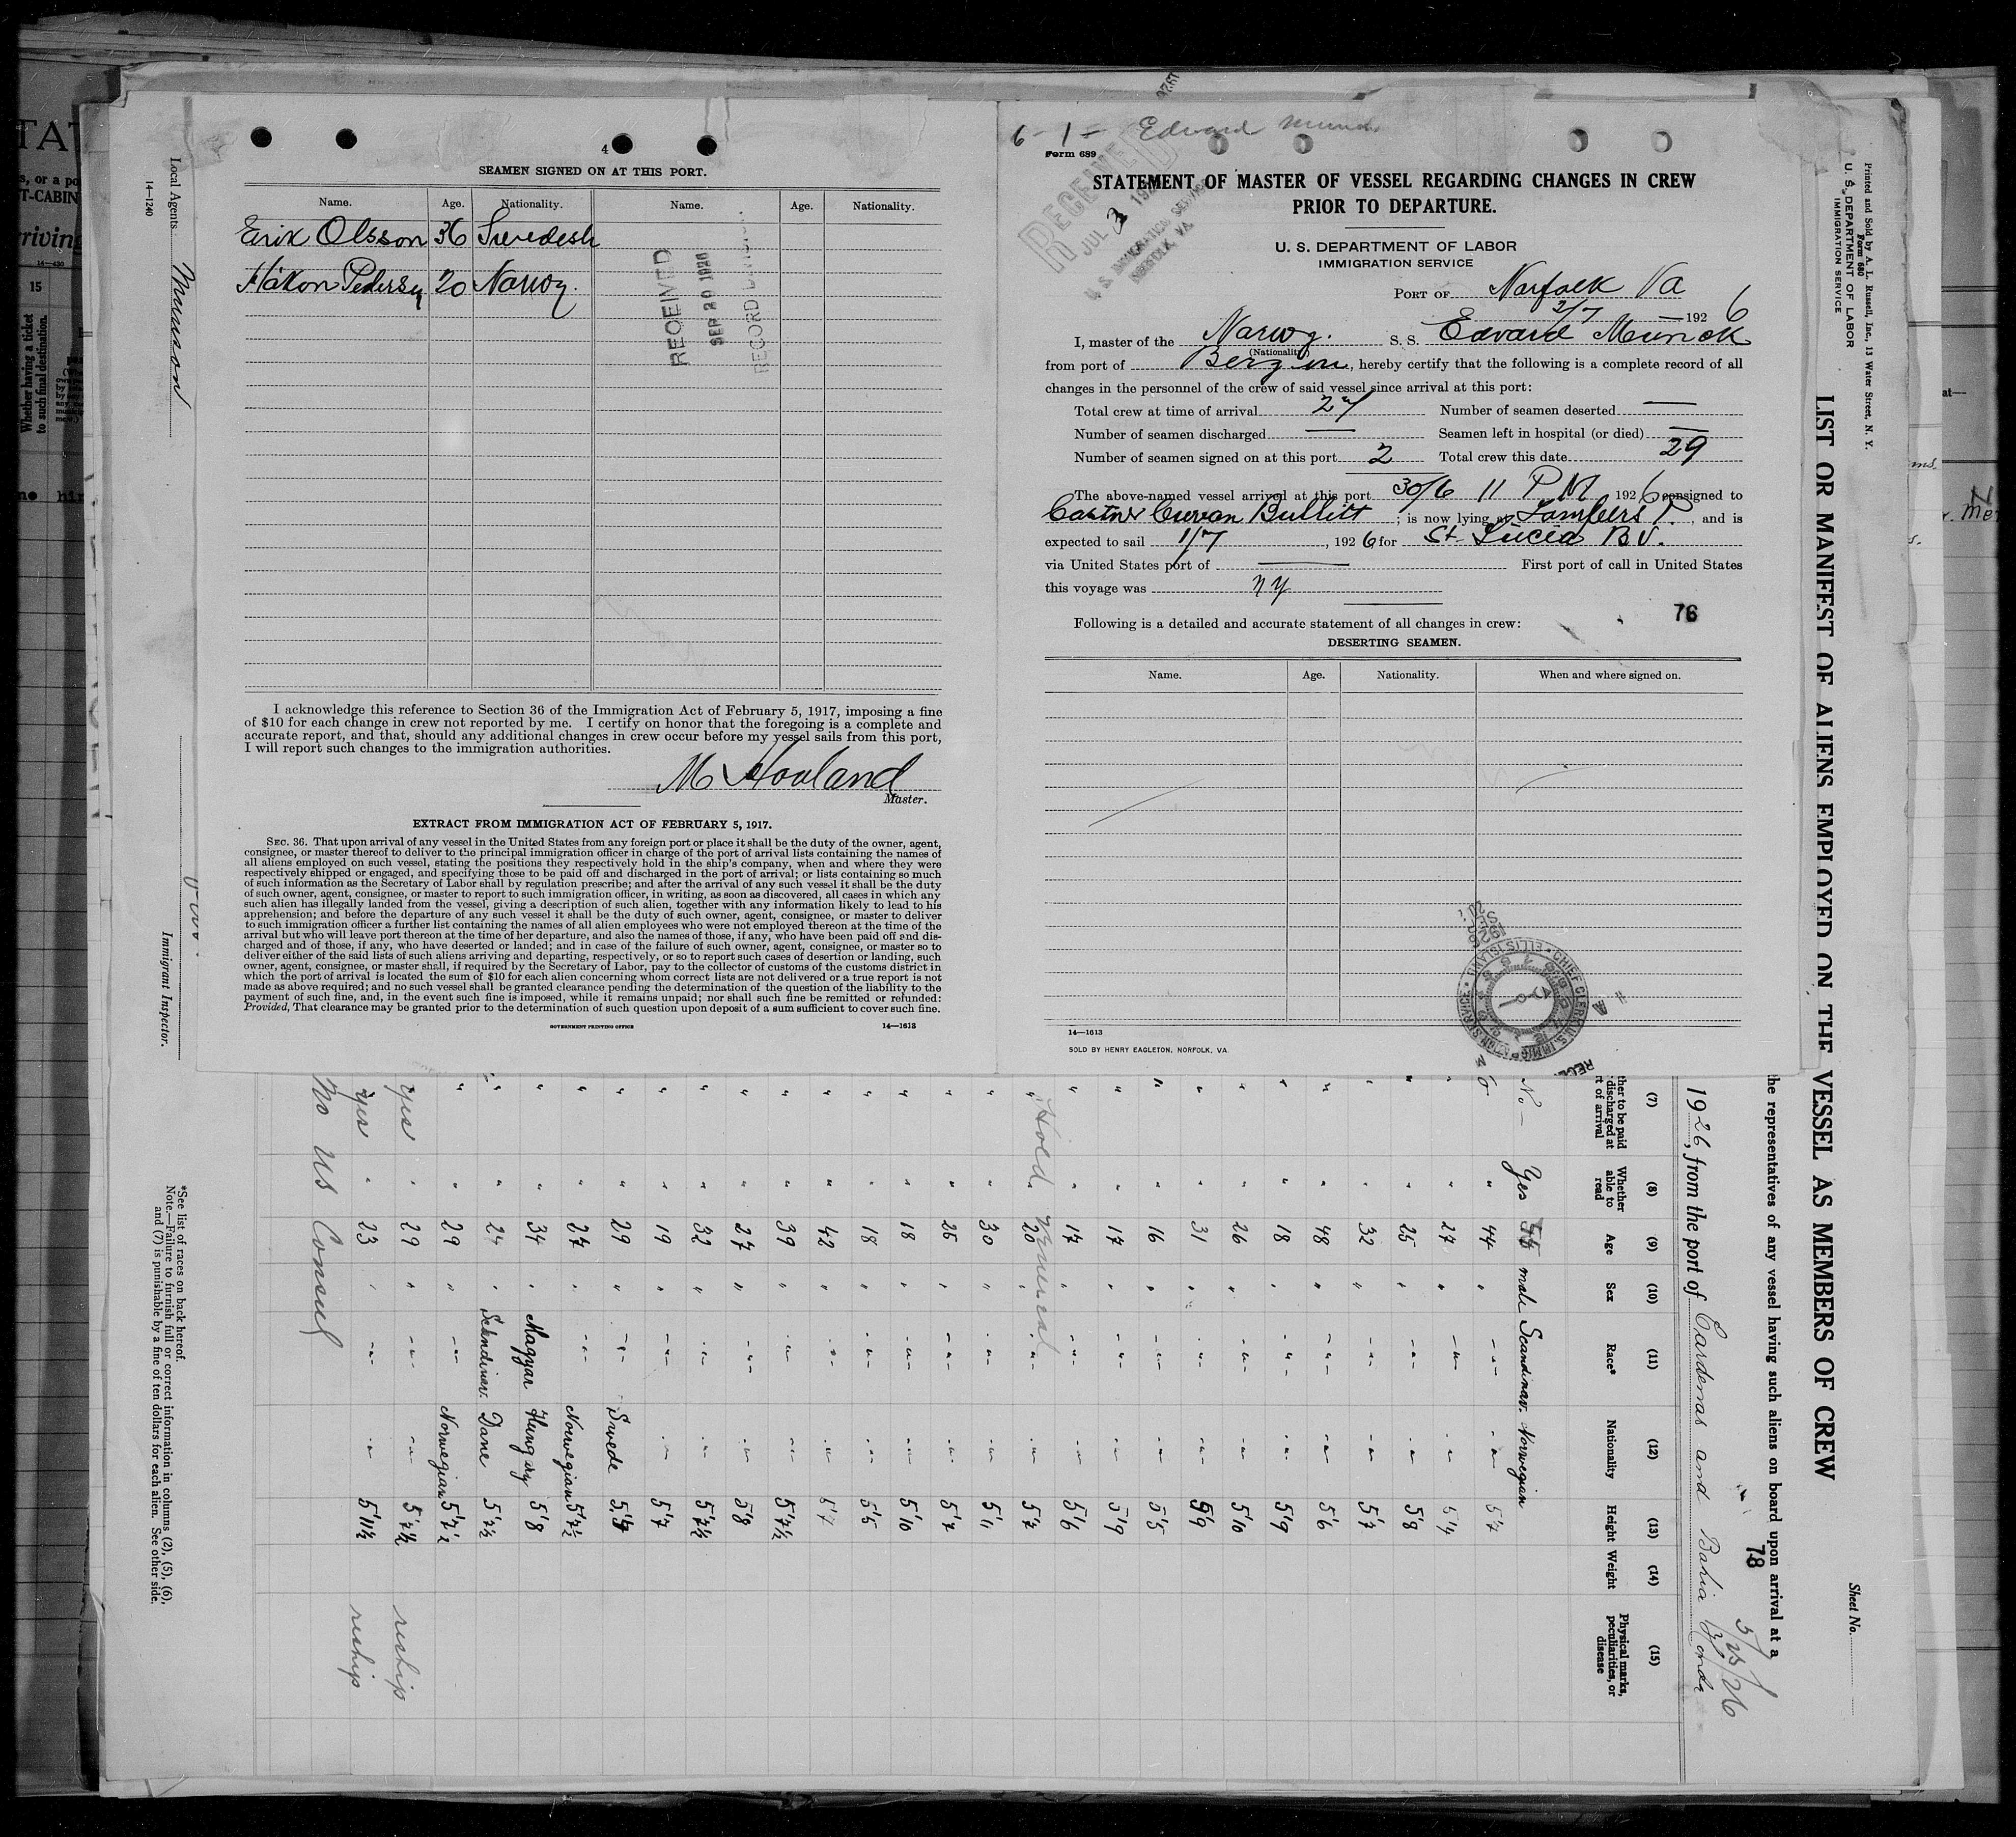 4
SEAMEN SIGNED ON AT THIS PORT.
Name. Age. Nationality. Name. Age. Nationality.
Erik Olsson 36 Swedesh
Håkon Pedersen 20 Narwoy.
RECEIVED
SEP 20 1926
RECORD
I acknowledge this reference to Section 36 of the Immigration Act of February 5, 1917, imposing a fine
of $10 for each change in crew not reported by me. I certify on honor that the foregoing is a complete and
accurate report, and that, should any additional changes in crew occur before my vessel sails from this port,
I will report such changes to the immigration authorities.
M Hovland
Master.
EXTRACT FROM IMMIGRATION ACT OF FEBRUARY 5, 1917.
SEC. 36. That upon arrival of any vessel in the United States from any foreign port or place it shall be the duty of the owner, agent,
consignee, or master thereof to deliver to the principal immigration officer in charge of the port of arrival lists containing the names of
all aliens employed on such vessel, stating the positions they respectively hold in the ship's company, when and where they were
respectively shipped or engaged, and specifying those to be paid off and discharged in the port of arrival; or lists containing so much
of such information as the Secretary of Labor shall by regulation prescribe; and after the arrival of any such vessel it shall be the duty
of such owner, agent, consignee, or master to report to such immigration officer, in writing, as soon as discovered, all cases in which any
such alien has illegally landed from the vessel, giving a description of such alien, together with any information likely to lead to his
apprehension; and before the departure of any such vessel it shall be the duty of such owner, agent, consignee, or master to deliver
to such immigration officer a further list containing the names of all alien employees who were not employed thereon at the time of the
arrival but who will leave port thereon at the time of her departure, and also the names of those, if any, who have been paid off and dis-
charged and of those, if any, who have deserted or landed; and in case of the failure of such owner, agent, consignee, or master so to
deliver either of the said lists of such aliens arriving and departing, respectively, or so to report such cases of desertion or landing, such
owner, agent, consignee, or master shall, if required by the Secretary of Labor, pay to the collector of customs of the customs district in
which the port of arrival is located the sum of $10 for each alien concerning whom correct lists are not delivered or a true report is not
made as above required; and no such vessel shall be granted clearance pending the determination of the question of the liability to the
payment of such fine, and, in the event such fine is imposed, while it remains unpaid; nor shall such fine be remitted or refunded:
Provided, That clearance may be granted prior to the determination of such question upon deposit of a sum sufficient to cover such fine.
GOVERNMENT PRINTING OFFICE 14—1613
6 - 1 - Edvard Munch
Form 689
RECEIVED
JUL 3 192
U. S. IMMIGRATION SERVICE
NORFOLK, VA.
STATEMENT OF MASTER OF VESSEL REGARDING CHANGES IN CREW
PRIOR TO DEPARTURE.
U. S. DEPARTMENT OF LABOR
IMMIGRATION SERVICE
PORT OF Norfolk Va
2/7 1926
I, master of the Narwoy. S. S. Edvard Munck
(Nationality)
from port of Bergen, hereby certify that the following is a complete record of all
changes in the personnel of the crew of said vessel since arrival at this port:
Total crew at time of arrival 27 Number of seamen deserted —
Number of seamen discharged — Seamen left in hospital (or died) —
Number of seamen signed on at this port 2 Total crew this date 29
The above-named vessel arrived at this port 30/6 11 P M 1926 consigned to
Castner Curran Bullitt ; is now lying at Lamberts P. , and is
expected to sail 1/7 , 1926 for St Lucia B V.
via United States port of — First port of call in United States
this voyage was NY
76
Following is a detailed and accurate statement of all changes in crew:
DESERTING SEAMEN.
Name. Age. Nationality. When and where signed on.
CHIEF CLERK U.S. IMMIGRATION SERVICE • ELLIS ISLAND •
14—1613
SOLD BY HENRY EAGLETON, NORFOLK, VA.
Printed and Sold by A. L. Russell, Inc., 13 Water Street, N. Y.
Form 680
U. S. DEPARTMENT OF LABOR
IMMIGRATION SERVICE
Sheet No.
LIST OR MANIFEST OF ALIENS EMPLOYED ON THE VESSEL AS MEMBERS OF CREW
the representatives of any vessel having such aliens on board upon arrival at a
78
5/25/26
1926, from the port of Cardenas and Bahia Honda
(7) (8) (9) (10) (11) (12) (13) (14) (15)
ther to be paid discharged at rt of arrival
Whether able to read
Age
Sex
Race*
Nationality
Height
Weight
Physical marks, peculiarities, or disease
No - Yes male Scandinav. Norwegian
" 44 " -"- -"- 5'7
" 27 " -"- -"-
" 25 " -"- -"- 5'8
" 32 " -"- -"- 5'7
" 48 " -"- -"- 5'6
" 18 " -"- -"- 5'9
" 26 " -"- -"- 5'10
" 31 " -"- -"- 5'9
" 16 " -"- -"- 5'5
" 17 " -"- -"- 5'9
" 17 " -"- -"- 5'6
Hold.
" 20 " -"- -"- 5'7
" 30 " -"- -"- 5'11
" 25 " -"- -"- 5'7
" 18 " -"- -"- 5'10
" 18 " -"- -"- 5'5
" 42 " -"- -"- 5'7
" 39 " -"- -"- 5'7½
" 27 " -"- -"- 5'8
" 32 " -"- -"- 5'7½
" 19 " -"- -"- 5'7
" 29 " -"- Swede
" 27 " -"- Norwegian 5'7½
" 34 " Magyar Hungary 5'8
" 24 " Skandinav. Dane 5'7½
" 29 " -"- Norwegian 5'7½
yes " 29 " -"- -"- 5'7½ reship
yes " 23 " -"- -"- 5'11½ reship
No US Consul
*See list of races on back hereof.
Note.—Failure to furnish full or correct information in columns (2), (5), (6),
and (7) is punishable by a fine of ten dollars for each alien. See other side.
Local Agents Munson
14—1240
Immigrant Inspector.
15
Whether having a ticket
to such final destination.